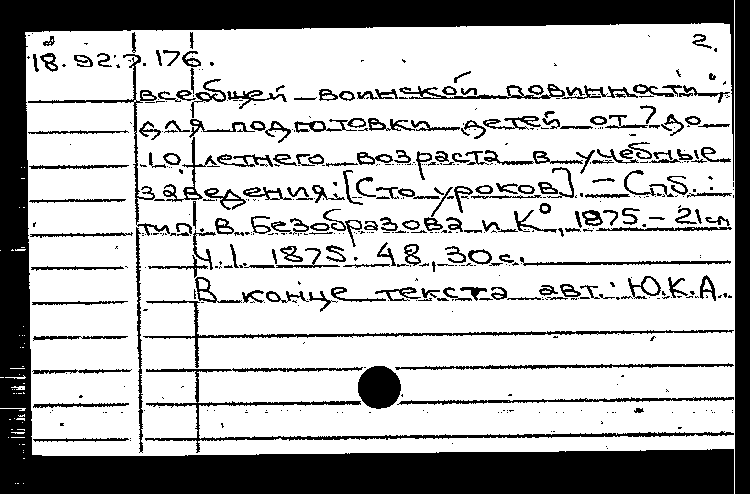 18.92.7.176.
2.
всеобщей воинской повинности",
для подготовки детей от 7 до
10 летнего возраста в учебные
заведения: [Сто уроков]. - Спб.:
тип. В. Безобразова и К°, 1875. - 21 см
Ч.1. 1875. 48, 30 с.
В конце текста авт.: Ю.К.А.